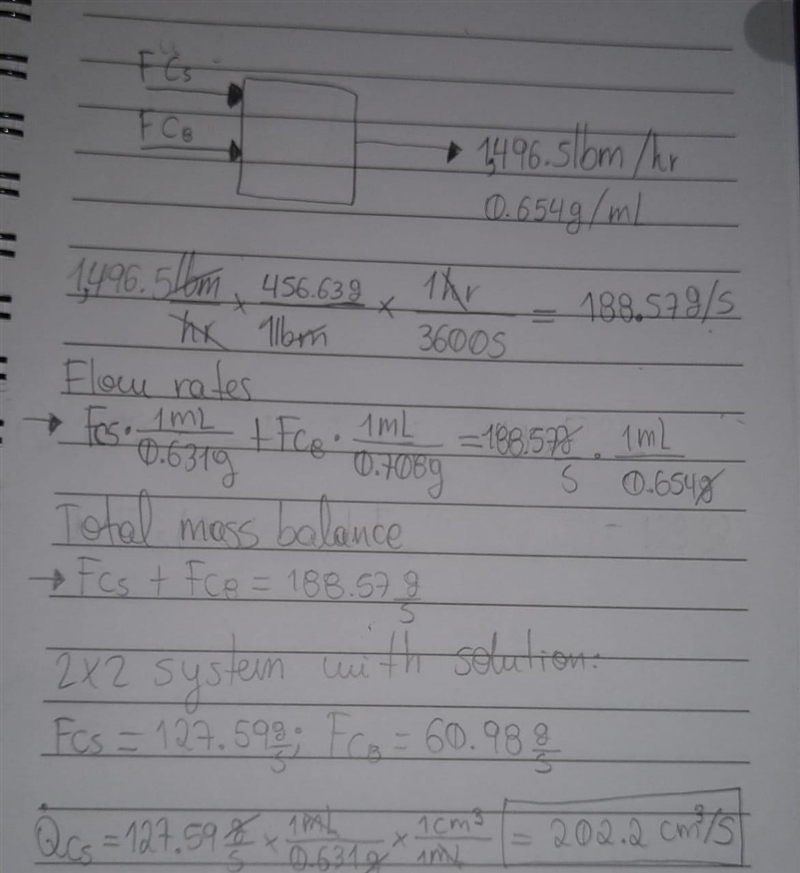 FC5
FCB
1,496.5lbm/hr
0.654g/ml
1,496.5lbm/hr × 456.63g/1lbm × 1hr/3600s = 188.57g/s
Flow rates
→ FC5 · 1mL/0.631g + FC8 · 1mL/0.708g = 188.57g/s · 1mL/0.654g
Total mass balance
→ FC5 + FC8 = 188.57 g/s
2x2 system with solution:
FC5 = 127.59 g/s; FC8 = 60.98 g/s
QC5 = 127.59 g/s × 1mL/0.631g × 1cm³/1mL = 202.2 cm³/s